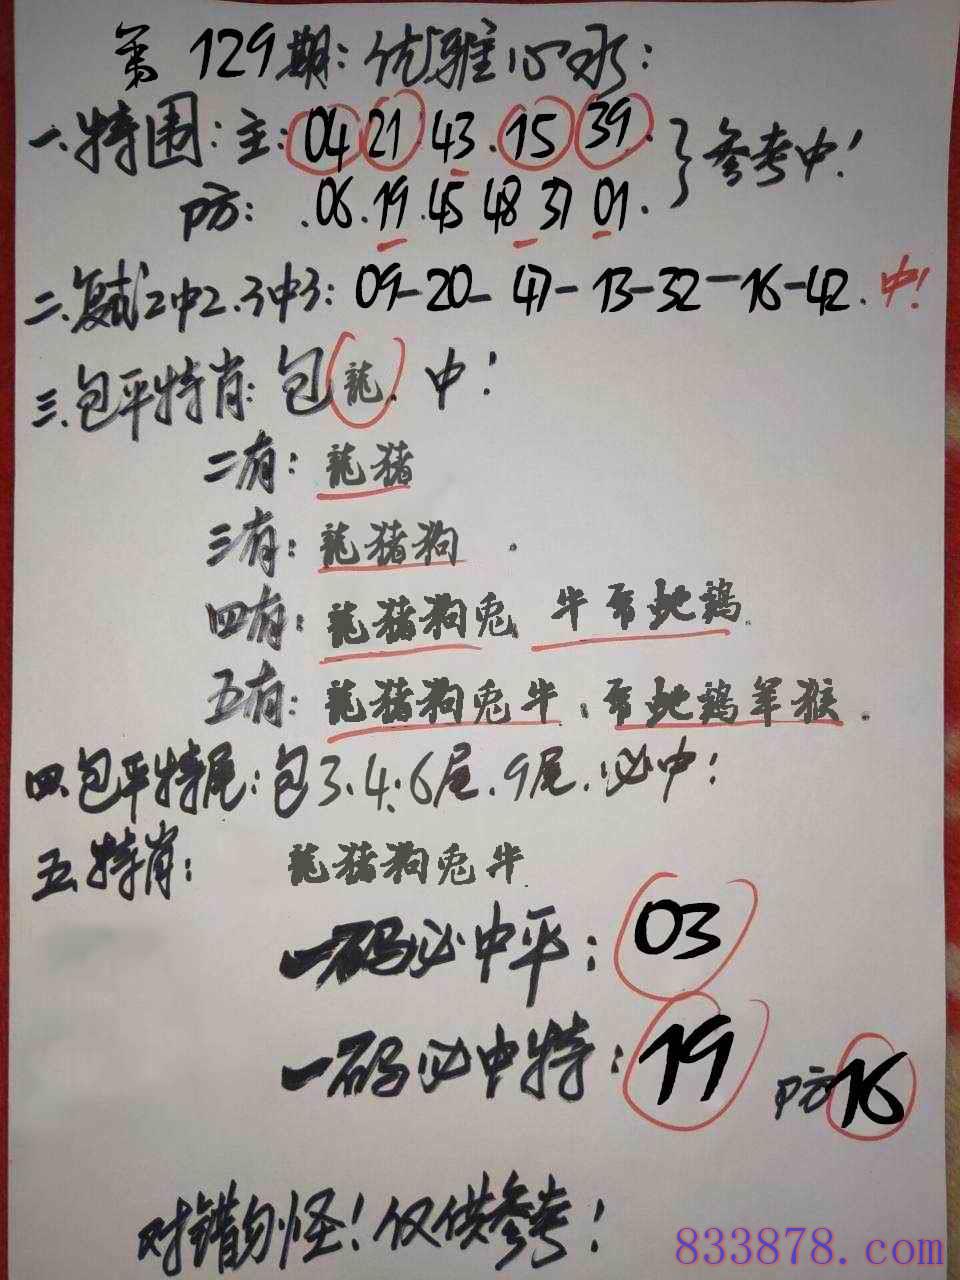 第129期:优雅心水:
一.特围:主:04 21 43.15 39.
防:.06.19.45 48 37 01.
}参考中!
二.复试2中2.3中3:09-20-47-13-32-16-42.中!
三.包平特肖:包龍.中!
二有:龍猪
三有:龍猪狗.
四有:龍猪狗兎 牛 蛇鸡
五有:龍猪狗兎牛. 蛇鸡羊猴.
四.包平特尾:包3.4.6尾.9尾.必中!
五.特肖: 龍猪狗兎牛
一码必中平:03
一码必中特:19 防16
对错勿怪!仅供参考!
833878.com